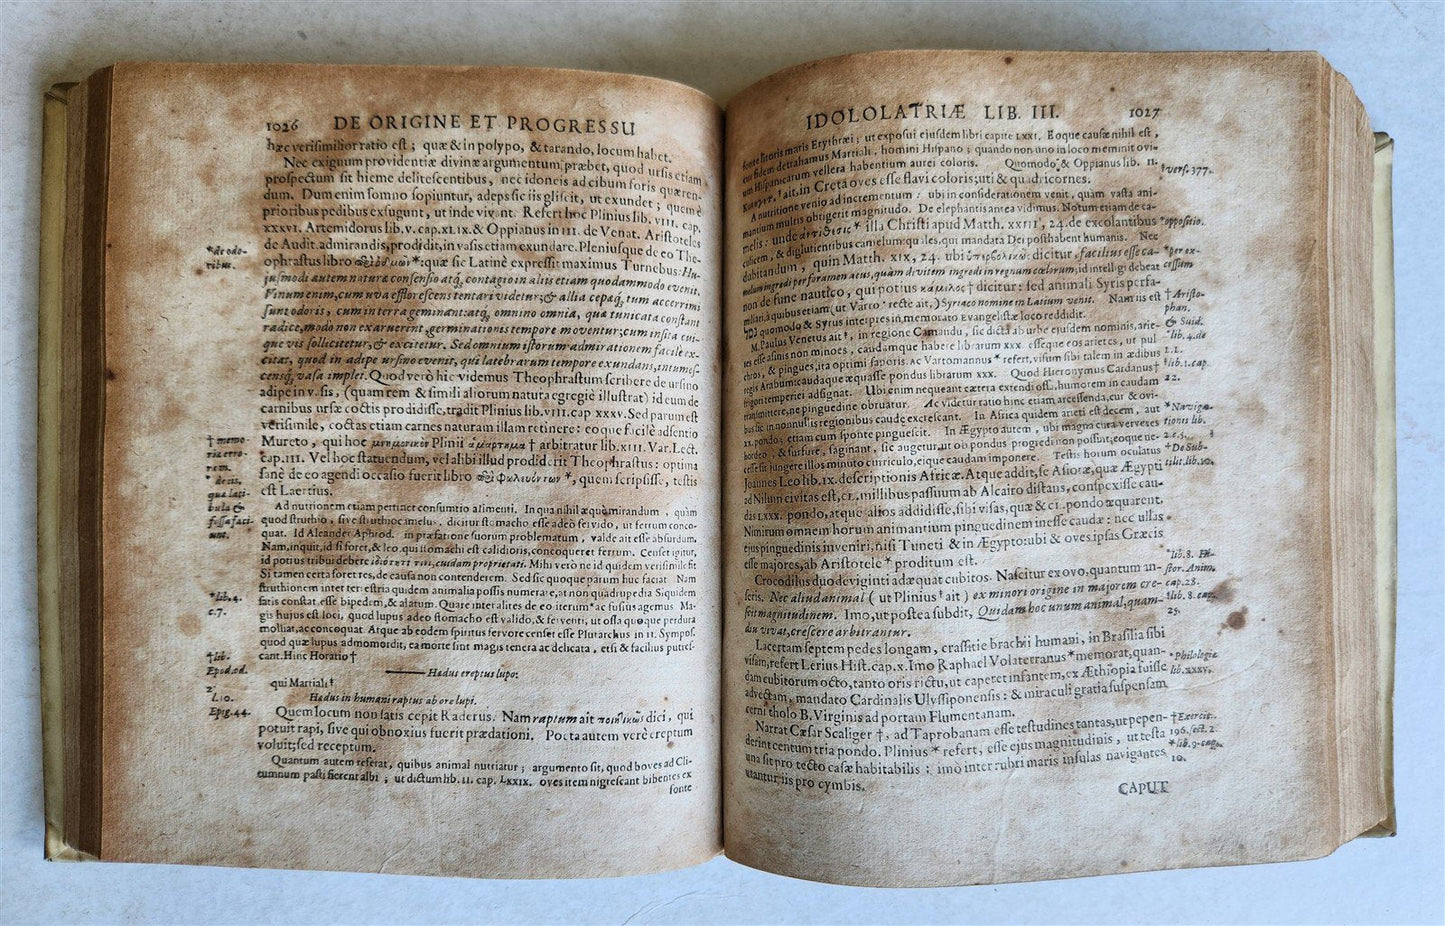 1026 DE ORIGINE ET PROGRESSU
hæc verisimilior ratio est; quæ & in polypo, & tarando, locum habet.
Nec exiguum providentiæ divinæ argumentum præbet, quod ursis etiam
prospectum sit hieme delitescentibus, nec idoneis ad cibum foris quæren-
dum. Dum enim somno sopiuntur, adeps sic iis gliscit, ut exundet; quem è
prioribus pedibus exsugunt, ut inde vivant. Refert hoc Plinius lib. VIII. cap.
XXXVI. Artemidorus lib. V. cap. XLIX. & Oppianus in III. de Venat. Aristoteles
de Audit. admirandis, prodidit, in vasis etiam exundare. Pleniusque de eo The-
*de odo-
ribus.
ophrastus libro *: quæ sic Latinè expressit maximus Turnebus: Hu-
jusmodi autem naturæ consensio atq; contagio in aliis etiam quodammodo evenit.
Vinum enim, cum uva efflorescens tentari videtur; & allia cepaq; tum acerrimi
sunt odoris, cum in terra germinant: atq; omnino omnia, quæ tunicata constant
radice, modo non exaruerint, germinationis tempore moventur; cum insita cui-
que vis sollicitetur, & excitetur. Sed omnium istorum admirationem facile ex-
citat, quod in adipe ursino evenit, qui latebrarum tempore exundans, intumes-
censq; vasa implet. Quod verò hic videmus Theophrastum scribere de ursino
adipe in vasis, (quam rem & simili aliorum natura egregiè illustrat) id eum de
carnibus ursæ coctis prodidisse, tradit Plinius lib. VIII. cap. XXXV. Sed parum est
verisimile, coctas etiam carnes naturam illam retinere: eoque facilè adsentio
† memo-
riæ erro-
rem.
Mureto, qui hoc μνημονικὸν Plinii ἁμάρτημα † arbitratur lib. XIII. Var. Lect.
cap. III. Vel hoc statuendum, vel alibi illud prodiderit Theophrastus: optima
* de iis,
quæ lati-
bula &
fossa faci-
unt.
sanè de eo agendi occasio fuerit libro *, quem scripsisse, testis
est Laertius.
Ad nutrionem etiam pertinet consumtio alimenti. In qua nihil æquè mirandum, quàm
quod struthio, sive struthiocamelus. dicitur stomacho esse adeo fervido, ut ferrum conco-
quat. Id Alexander Aphrod. in præfatione suorum problematum, valde ait esse absurdum.
Nam, inquit, id si foret, & leo, qui stomachi est calidioris, concoqueret ferrum. Censet igitur,
id potius tribui debere ἰδιότητί τινι, cuidam proprietati. Mihi verò ne id quidem verisimile sit
Si tamen certa foret res, de causa non contenderem. Sed sic quoque parum huc faciat. Nam
struthionem inter terrestria quidem animalia possis numerare, at non quadrupedia. Siquidem
*lib. 4.
c. 7.
satis constat, esse bipedem, & alatum. Quare inter alites de eo iterum * ac fusius agemus. Ma-
gis hujus est loci, quod lupus adeo stomacho est valido, & ferventi, ut ossa quoque perdura
molliat, ac concoquat. Atque ab eodem spiritus fervore censet esse Plutarchus in II. Sympos.
quod quæ lupus admomordit, ea morte sint magis tenera ac delicata, etsi & facilius putres-
†lib.
Epod. od.
2.
cant. Hinc Horatio †
Hædus ereptus lupo:
‡ l. 10.
Epig. 44.
qui Martiali ‡
Hædus inhumani raptus ab ore lupi.
Quem locum non satis cepit Raderus. Nam raptum ait ποιητικῶς dici, qui
potuit rapi, sive qui obnoxius fuerit prædationi. Poëta autem verè ereptum
voluit; sed receptum.
Quantum autem referat, quibus animal nutriatur; argumento sit, quod boves ad Cli-
tumnum pasti fierent albi; ut dictum lib. II. cap. LXXIX. oves item nigrescant bibentes ex
fonte
IDOLOLATRIÆ LIB. III. 1027
fonte litoris maris Erythræi; ut exposui ejusdem libri capite LXXI. Eoque causæ nihil est,
cur fidem detrahamus Martiali, homini Hispano; quando non uno in loco meminit ovi-
um Hispanicarum vellera habentium aurei coloris. Quomodo & Oppianus lib. II.
† vers. 377.
† ait, in Creta oves esse flavi coloris; uti & quadricornes.
A nutritione venio ad incrementum: ubi in considerationem venit, quàm vasta ani-
mantium multis obtigerit magnitudo. De elephantis antea vidimus. Notum etiam de ca-
*oppositio.
melis: unde ἀντίθεσις * illa Christi apud Matth. XXIII, 24. de excolantibus
culicem, & diglutientibus camelum: quales, qui mandata Dei posthabent humanis. Nec
*per ex-
cessum
dubitandum, quin Matth. XIX, 24. ubi ὑπερβολικῶς dicitur, facilius esse ca-
melum ingredi per foramen acus, quàm divitem ingredi in regnum cœlorum; id intelligi debeat
† Aristo-
phan.
& Suid.
non de fune nautico, qui potius κάμιλος † dicitur: sed animali Syris perfa-
miliari, à quibus etiam (ut Varro * rectè ait,) Syriaco nomine in Latium venit. Nam iis est
*lib. 4. de
L. L.
גמל quomodo & Syrus interpres in, memorato Evangelistæ loco reddidit.
M. Paulus Venetus ait †, in regione Camandu, sic dictâ ab urbe ejusdem nominis, arie-
†lib. 1. cap.
22.
tes esse asinis non minoes, caudamque habere librarum XXX. esseque eos arietes, ut pul-
chros, & pingues, ita optimi saporis. Ac Vartomannus * refert, visum sibi talem in ædibus
*Naviga-
tionis lib.
2. c. 5.
regis Arabum: caudaque æquasse pondus librarum XXX. Quod Hieronymus Cardanus †
†De Sub-
tilit. lib. 10.
frigori temperiei adsignat. Ubi enim nequeant cætera extendi ossa, humorem in caudam
transmittere, ne pinguedine obruatur. Ac videtur ratio hinc etiam arcessenda, cur & ovi-
bus sic in nonnullis regionibus caudæ excrescant. In Africa quidem arieti est decem, aut
XX. pondo; etiam cum sponte pinguescit. In Ægypto autem, ubi magna cura verveces
hordeo, & furfure, saginant, sic augetur, ut ob pondus progredi non possut; eoque ne-
cesse sit jungere illos minuto curriculo, eique caudam imponere. Testis horum oculatus
Joannes Leo lib. IX. descriptionis Africæ. Atque addit, se Asiotæ, quæ Ægypti
ad Nilum civitas est, CL. millibus passuum ab Alcairo distans, conspexisse cau-
das LXXX. pondo, atque alios addidisse, sibi visas, quæ & CL. pondo æquarent.
Nimirum omnem horum animantium pinguedinem inesse caudæ: nec ullas
ejus pinguedinis inveniri, nisi Tuneti & in Ægypto: ubi & oves ipsas Græcis
* lib. 8. Hi-
stor. Anim.
cap. 28.
esse majores, ab Aristotele * proditum est.
Crocodilus duodeviginti adæquat cubitos. Nascitur ex ovo, quantum an-
‡lib. 8. cap.
25.
seris. Nec aliud animal (ut Plinius ‡ ait) ex minori origine in majorem cre-
scit magnitudinem. Imo, ut postea subdit, Quidam hoc unum animal, quam-
diu vivat, crescere arbitrantur.
Lacertam septem pedes longam, crassitie brachii humani, in Brasilia sibi
* Philologiæ
lib. XXXV.
visam, refert Lerius Hist. cap. X. Imo Raphael Volaterranus * memorat, quan-
dam cubitorum octo, tanto oris rictu, ut caperet infantem, ex Æthiopia fuisse
advectam, mandato Cardinalis Ulyssiponensis: & miraculi gratia suspensam
cerni tholo B. Virginis ad portam Flumentanam.
†Exercit.
196. sect. 2.
Narrat Cæsar Scaliger †, ad Taprobanam esse testudines tantas, ut pepen-
derint centum tria pondo. Plinius * refert, esse ejus magnitudinis, ut testa
* lib. 9. cap.
10.
una sit pro tecto casæ habitabilis: imò inter rubri maris insulas navigantes
utantur; iis pro cymbis.
CAPUT